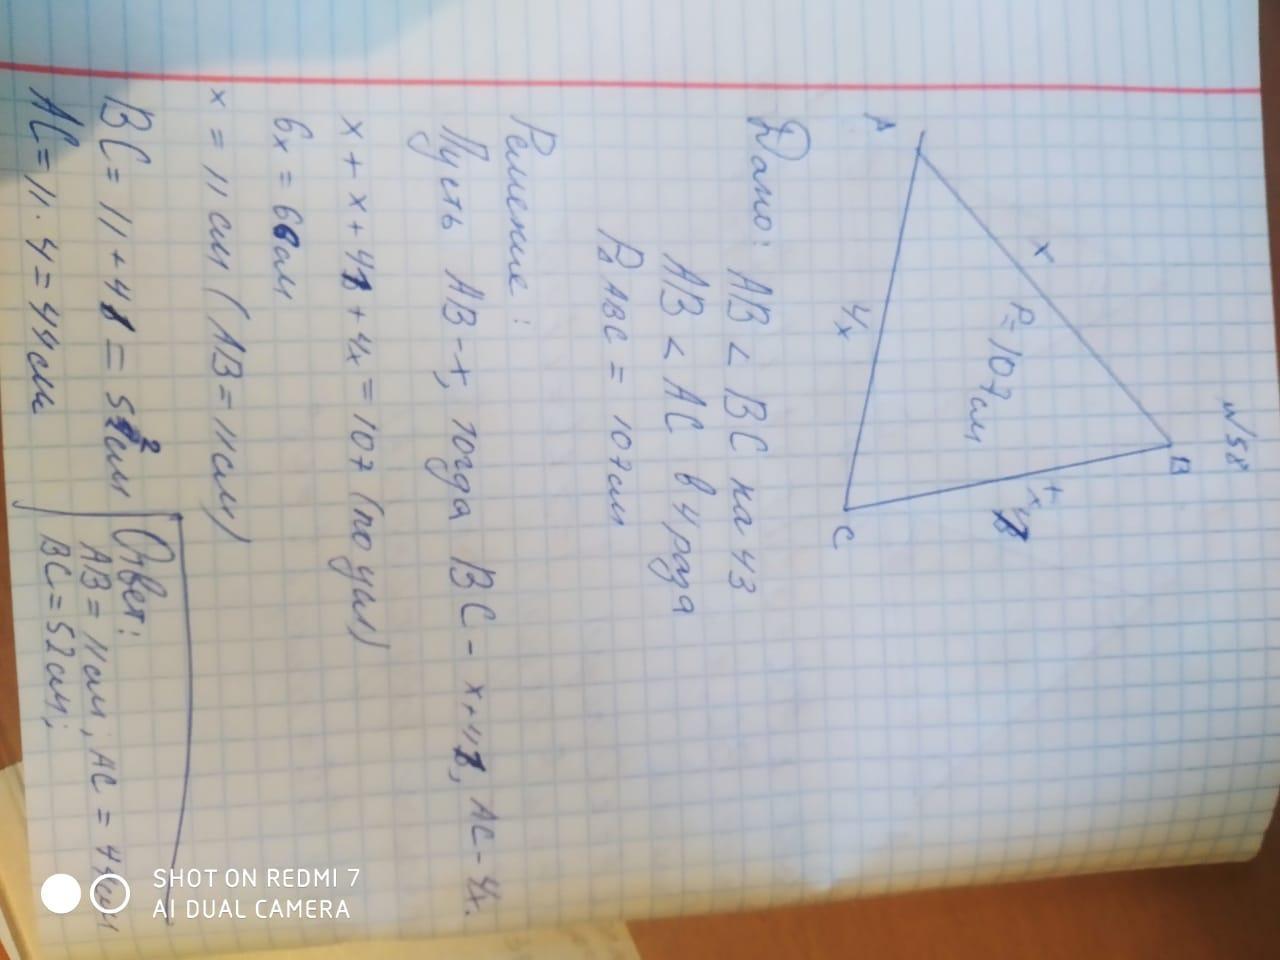 N58
A
x
B
P=107см
4x
x+41
C
Дано: AB < BC на 43
AB < AC в 4 раза
P△ABC = 107см
Решение:
Пусть AB-x, тогда BC - x+41, AC-4x.
x + x + 41 + 4x = 107 (по усл)
6x = 66см
x = 11 см (AB = 11см)
BC = 11 + 41 = 52см
AC = 11 · 4 = 44см
Ответ:
AB = 11см; AC = 44см
BC = 52см;
SHOT ON REDMI 7
AI DUAL CAMERA